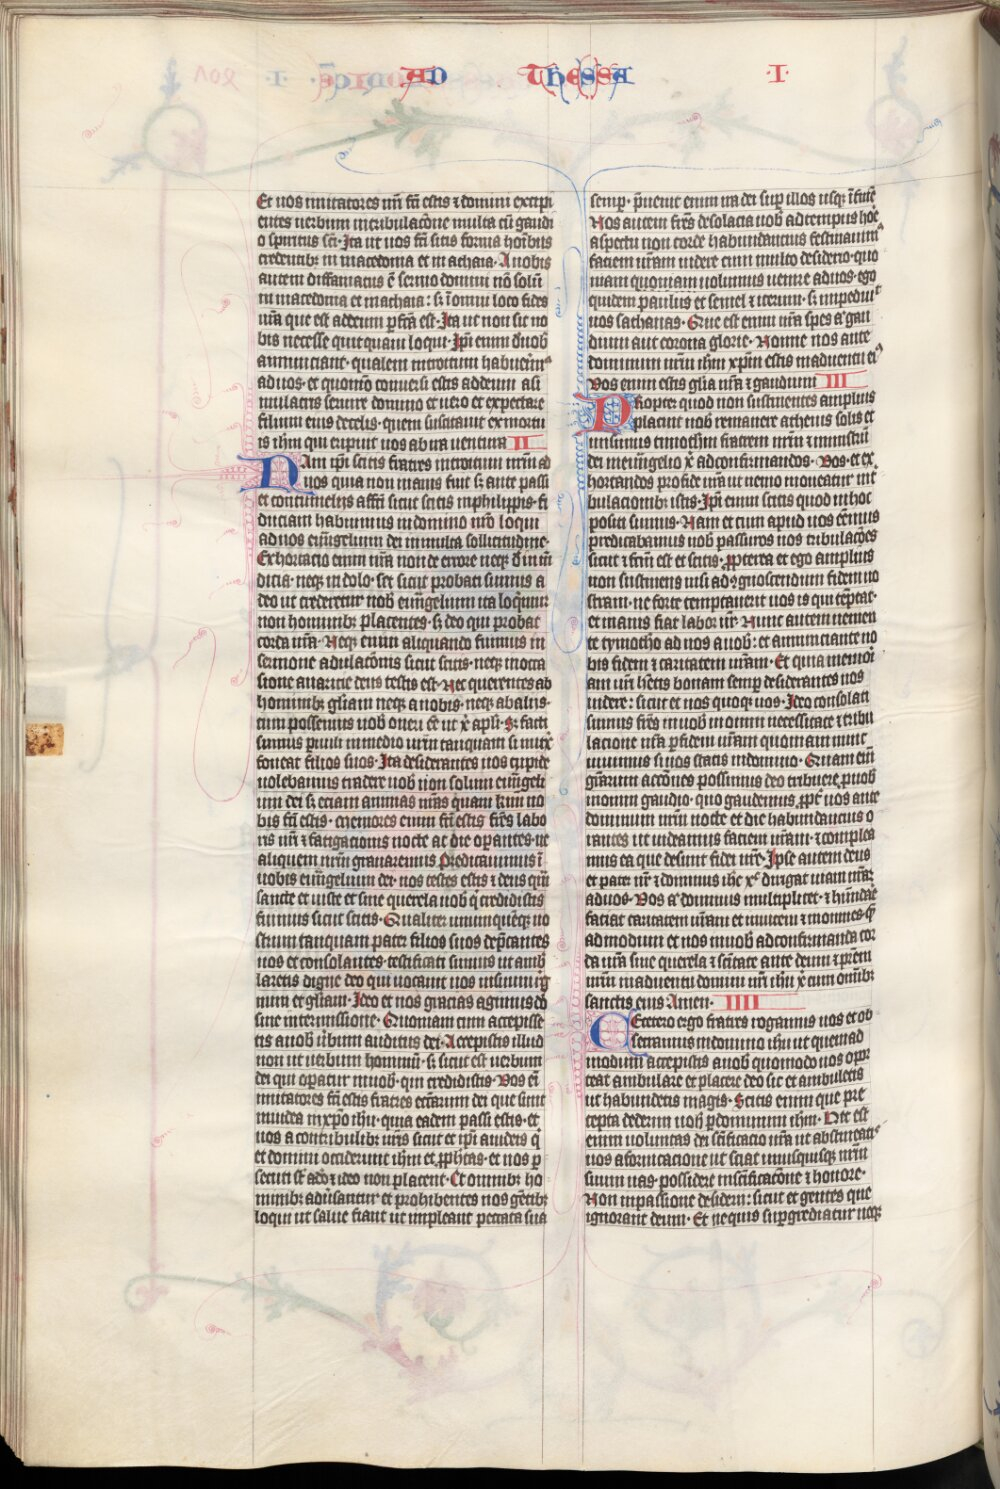 AD THESSA .I.
Et uos imitatores nr̄i fc̄i estis ⁊ domini excipi
entes uerbum in tribulac̄one multa cū gaudi
o spiritus sc̄i· Ita ut uos fc̄i sitis forma hoīb̄us
credentib; in macedonia et in achaia· A uobis
autem diffamatus ē sermo domini nō solū
in macedonia et in achaia: s; ī omni loco fides
ur̄a que est ad deum p̄fc̄a est· Ita ut non sit no
bis necesse quitquam loqui· Ip̄i enim d̄ nob̄
annunciant· qualem introitum habuerim᷒
ad uos· et quomō conuersi estis ad deum a si
mulacris seruire domino et uero et expectare
filium eius de celis· quem suscitauit ex mortu
is ih̄m qui eripuit nos ab ira uentura II
Nam ip̄i scitis fratres introitum nr̄um ad
uos quia non inanis fuit s; ante passi
et contumelijs affc̄i sicut scitis in philippis· fi
duciam habuimus in domino nr̄o loqui
ad uos eūngelium dei in multa sollicitudine·
Exhortacio enim nr̄a non de errore neq; d̄ inm̄
dicia· neq; in dolo· set sicut probati sumus a
deo ut crederetur nob̄ eūngelium ita loq̄mur
non hominib; placentes· s; deo qui probat
corda nr̄a· Neq; enim aliquando fuimus in
sermone adulac̄onis sicut scitis· neq; in occa
sione auaricie deus testis est· Nec querentes ab
hominib; gl̄iam neq; a nobis· neq; ab alijs·
cum possemus uob̄ oneri ēē ut x̄ ap̄li· S; facti
sumus p̄uuli in medio ur̄m tanquam si nutx̄
foueat filios suos· Ita desiderantes uos cupide
uolebamus tradere uob̄ non solum eūngeli
um dei s; eciam animas nr̄as quam k̄mi no
bis fc̄i estis· memores enim fc̄i estis fr̄es labo
ris nr̄i ⁊ fatigacionis nocte ac die op̄antes· ne
aliquem ur̄m grauaremus predicauimus ī
uobis eūngelium dei· uos testes estis ⁊ deus q̄m
sancte et iuste et sine querela uob̄ q̄ credidistis
fuimus sicut scitis· Qualiter unumquēq; ue
strum tanquam pater filios suos dep̄cantes
uos et consolantes· testificati sumus ut amb̄
laretis digne deo qui uocauit uos in suum rḡ
num et gl̄iam· Ideo et nos gracias agimus dō
sine intermissione· Quoniam cum accepisse
tis a nob̄ ūbum auditus dei· Accepistis illud
non ut uerbum hominū· s; sicut est uerbum
dei qui op̄atur in uob̄· qui credidistis· Vos eī
imitatores fc̄i estis fratres ecc̄arum dei que sunt
in iudea in xp̄o ih̄u· quia eadem passi estis· et
uos a contribulib; ur̄is sicut et ip̄i a iudeis q̄
et domini occiderunt ih̄m et ꝓph̄etas· et nos p̄
secuti st̄ ad̄o ⁊ ideo non placent· Et omnib; ho
minib; adūsantur et prohibentes nos gētib;
loqui ut salue fiant ut impleant peccata sua
semp· p̄uenit enim ira dei sup illos usq; ī finē
Nos autem fr̄es desolati a uob̄ ad tempus hoē
aspectu non corde habundantius festinauim᷒
faciem ur̄am uidere cum multo desiderio· quo
niam quoniam uoluimus uenire ad uos· ego
quidem paulus et semel ⁊ iterum· s; impediūt
nos sathanas· Que est enim nr̄a spes aᵗ gau
dium aut corona glorie· Nonne uos ante
dominum nr̄m ih̄m xp̄m estis in aduentu ei᷒
Vos enim estis gl̄ia nr̄a ⁊ gaudium III
Propter quod non sustinentes amplius
placuit nob̄ remanere athenis solis et
misimus timotheū fratrem nr̄m ⁊ ministrū
dei in eūngelio x̄ ad confirmandos· Vos· et ex
hortandos pro fide ur̄a ut nemo moueatur in t̄
bulacionib; istis· Ip̄i enim scitis quod in hoc
positi sumus· Nam et cum apud uos eēmus
predicabamus uob̄ passuros nos tribulac̄oes
sicut ⁊ fc̄m est et scitis· ꝓpterea et ego amplius
non sustinens misi ad ꝯgnoscendum fidem ue
stram· ne forte temptauerit uos is qui tēptat·
et inanis fiat labor nr̄· Nunc autem uenien
te tymotheo ad nos a uob̄: et annunciante no
bis fidem ⁊ caritatem ur̄am· Et quia memori
am nr̄i h̄etis bonam semp desiderantes nos
uidere: sicut et nos quoq; uos· Ideo consolati
sumus fr̄es in uob̄ in omni necessitate ⁊ tribu
lacione nr̄a p̄ fidem ur̄am quoniam nunc
uiuimus si uos statis in domino· Quam eīm
gr̄arum acc̄oes possumus deo tribuere ꝓ uob̄
in omni gaudio· quo gaudemus ꝓpt̄ uos ante
dominum nr̄m nocte et die habundantius o
rantes ut uideamus faciem ur̄am· ⁊ complea
mus ea que desunt fidei ur̄e· Ipse autem deus
et pater nr̄ ⁊ dominus ih̄c x̄c dirigat uiam nr̄am
ad uos· Vos aᵗ dominus multiplicet· ⁊ h̄undaē
faciat caritatem ur̄am et inuicem ⁊ in omnes· q̄
ad modum et nos in uob̄ ad confirmanda cor
da ur̄a sine querela ⁊ sc̄itate ante deum ⁊ pr̄em
nr̄m in aduentu domini nr̄i ih̄u x̄ cum omīb;
sanctis eius Amen· IIII
Cetero ergo fratres rogamus uos et ob
secramus in domino ih̄u ut quemad
modum accepistis a nob̄ quomodo uos opor
teat ambulare et placere deo sic et ambuletis
ut habundetis magis· Scitis enim que pre
cepta dederim uob̄ p̄ dominum ih̄m· Hec est
enim uoluntas dei sc̄ificatio ur̄a ut abstineatis
uos a fornicacione ut sciat unusquisq; ur̄m
suum uas· possidere in sc̄ificac̄one ⁊ honore·
Non in passione desiderii: sicut et gentes que
ignorant deum· Et ne quis supgrediatur neq;